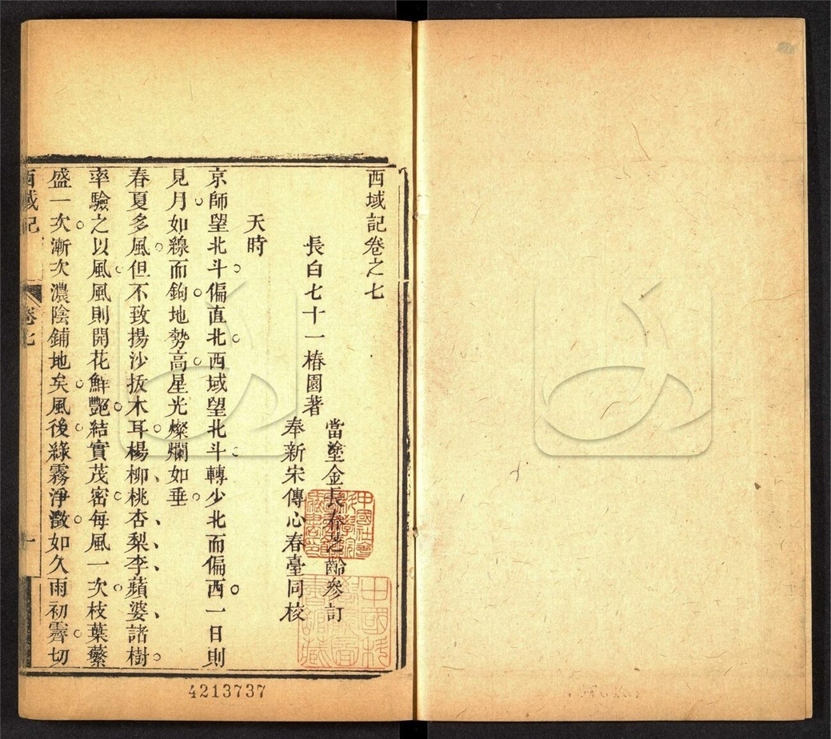 西域記卷之七
長白七十一椿園著
當塗金長春芝齡參訂
奉新宋傳心春臺同校
天時
京師望北斗偏直北西域望北斗轉少北而偏西一日則
見月如線而鉤地勢高星光燦爛如垂
春夏多風但不致揚沙拔木耳楊柳桃杏梨李蘋婆諸樹
率驗之以風風則開花鮮艷結實茂密每風一次枝葉蘩
盛一次漸次濃陰鋪地矣風後綠霧淨斂如久雨初霽切
西域記
卷七
一
4213737